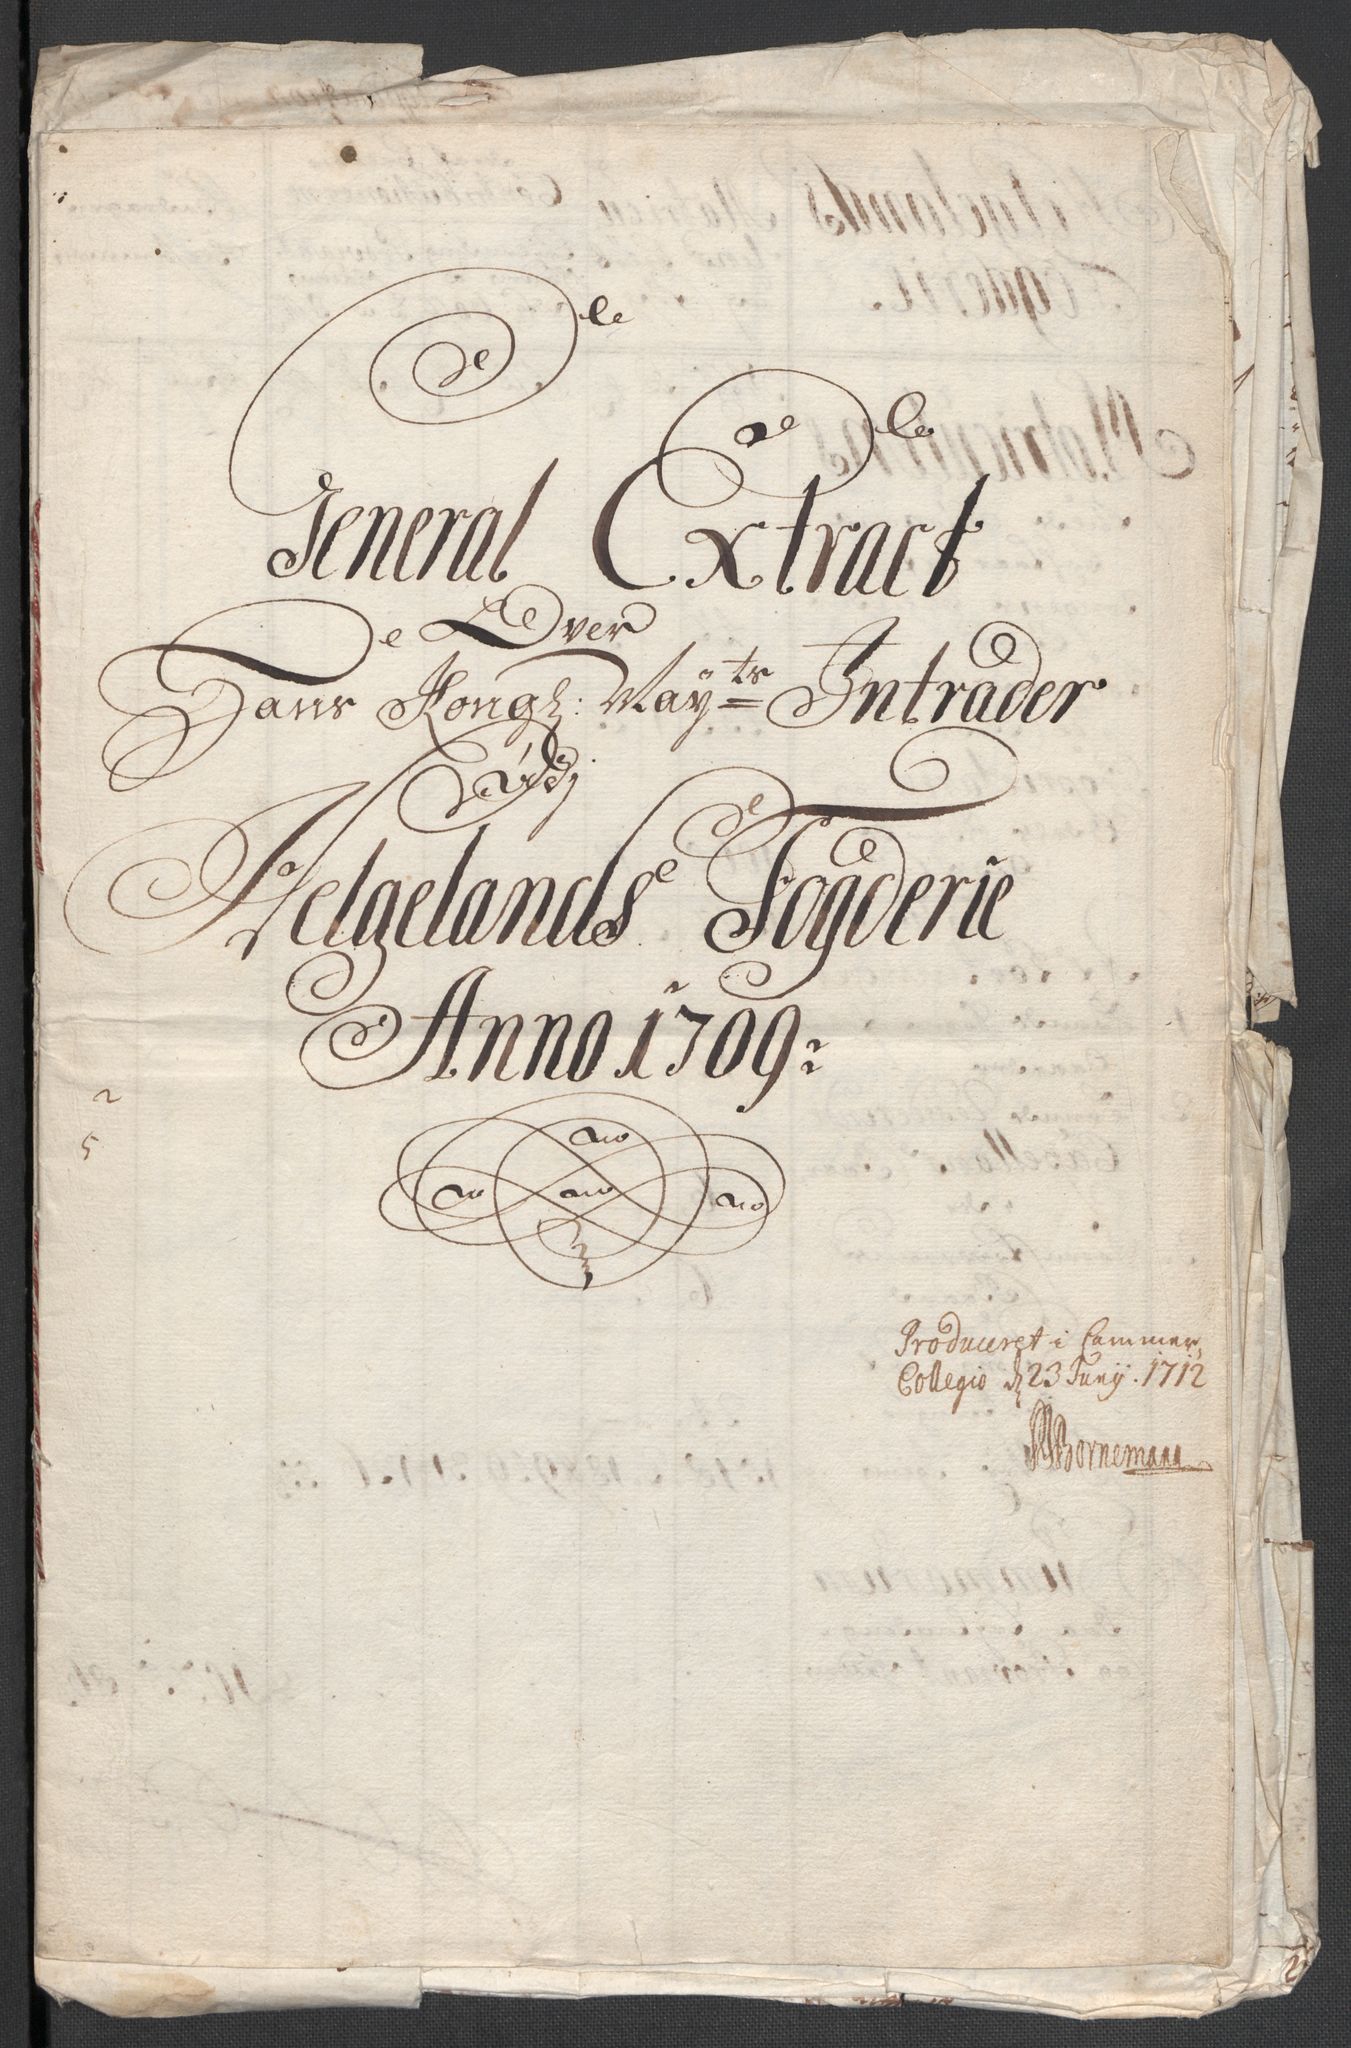 General Extract
Over
Hans Kongl: Mayts Intrader
Udj
Helgelands Fogderie
Anno 1709:
2
5
Produceret i Cammer,
Collegio d 23 Junij. 1712
Bornemann